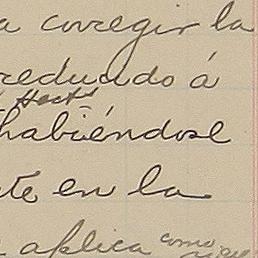 a corregir la
redundo á
Hect^s
habiéndose
te en la
aplica como